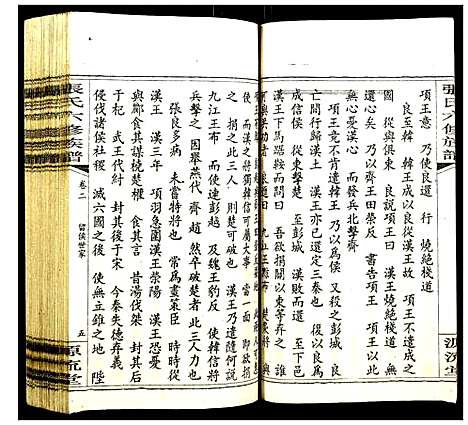 張氏六修族譜
項王意 乃使良還 行 燒絶棧道
良至韓 韓王成以良從漢王故 項王不遣成之
國 從與俱東 良說項王曰 漢王燒絶棧道 無
還心矣 乃以齊王田榮反 書告項王 項王以此
無憂漢心 而發兵北擊齊
項王竟不肯遣韓王 乃以爲侯 又殺之彭城 良
亡 間行歸漢王 漢王亦已還定三秦也 復以良爲
侯 從東擊楚 至彭城 漢敗而還 至下邑
漢王下馬踞鞍而問曰 吾欲捐關以東等弃之 誰
而漢王之將獨韓信可屬大事 當一面 即欲捐
之 捐之此三人 則楚可破也 漢王乃遣隨何說
九江王布 而使人連彭越 及魏王豹反 使韓信將
兵擊之 因舉燕代齊趙 然卒破楚者 此三人力也
張良多病 未嘗特將也 常爲畫策臣 時時從
漢王 漢三年 項羽急圍漢王滎陽 漢王恐憂
與酈食其謀橈楚權 食其曰 昔湯伐桀 封其後
於杞 武王伐紂 封其後于宋 今秦失德弃義
侵伐諸侯社稷 滅六國之後 使無立錐之地 陛
張氏六修族譜
卷二
留侯世家
五
源流堂